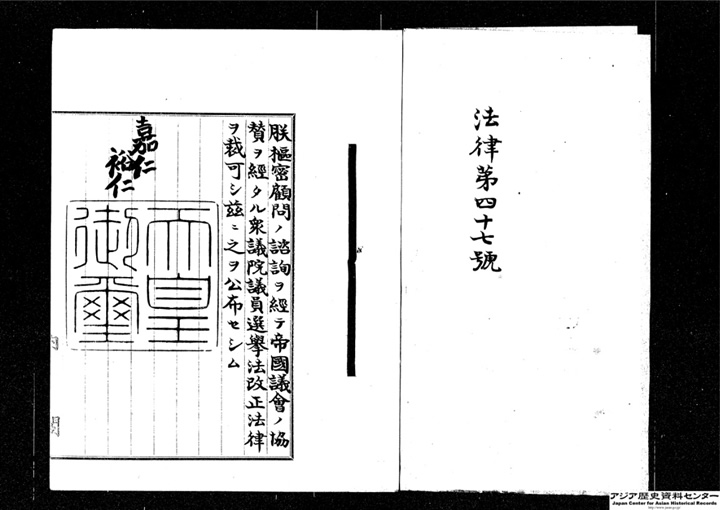 法律第四十七號
朕樞密顧問ノ諮詢ヲ經テ帝國議會ノ協
贊ヲ經タル衆議院議員選擧法改正法律
ヲ裁可シ茲ニ之ヲ公布セシム
嘉仁
裕仁
天皇
御璽
内
閣
アジア歴史資料センター
Japan Center for Asian Historical Records
http://www.jacar.go.jp/